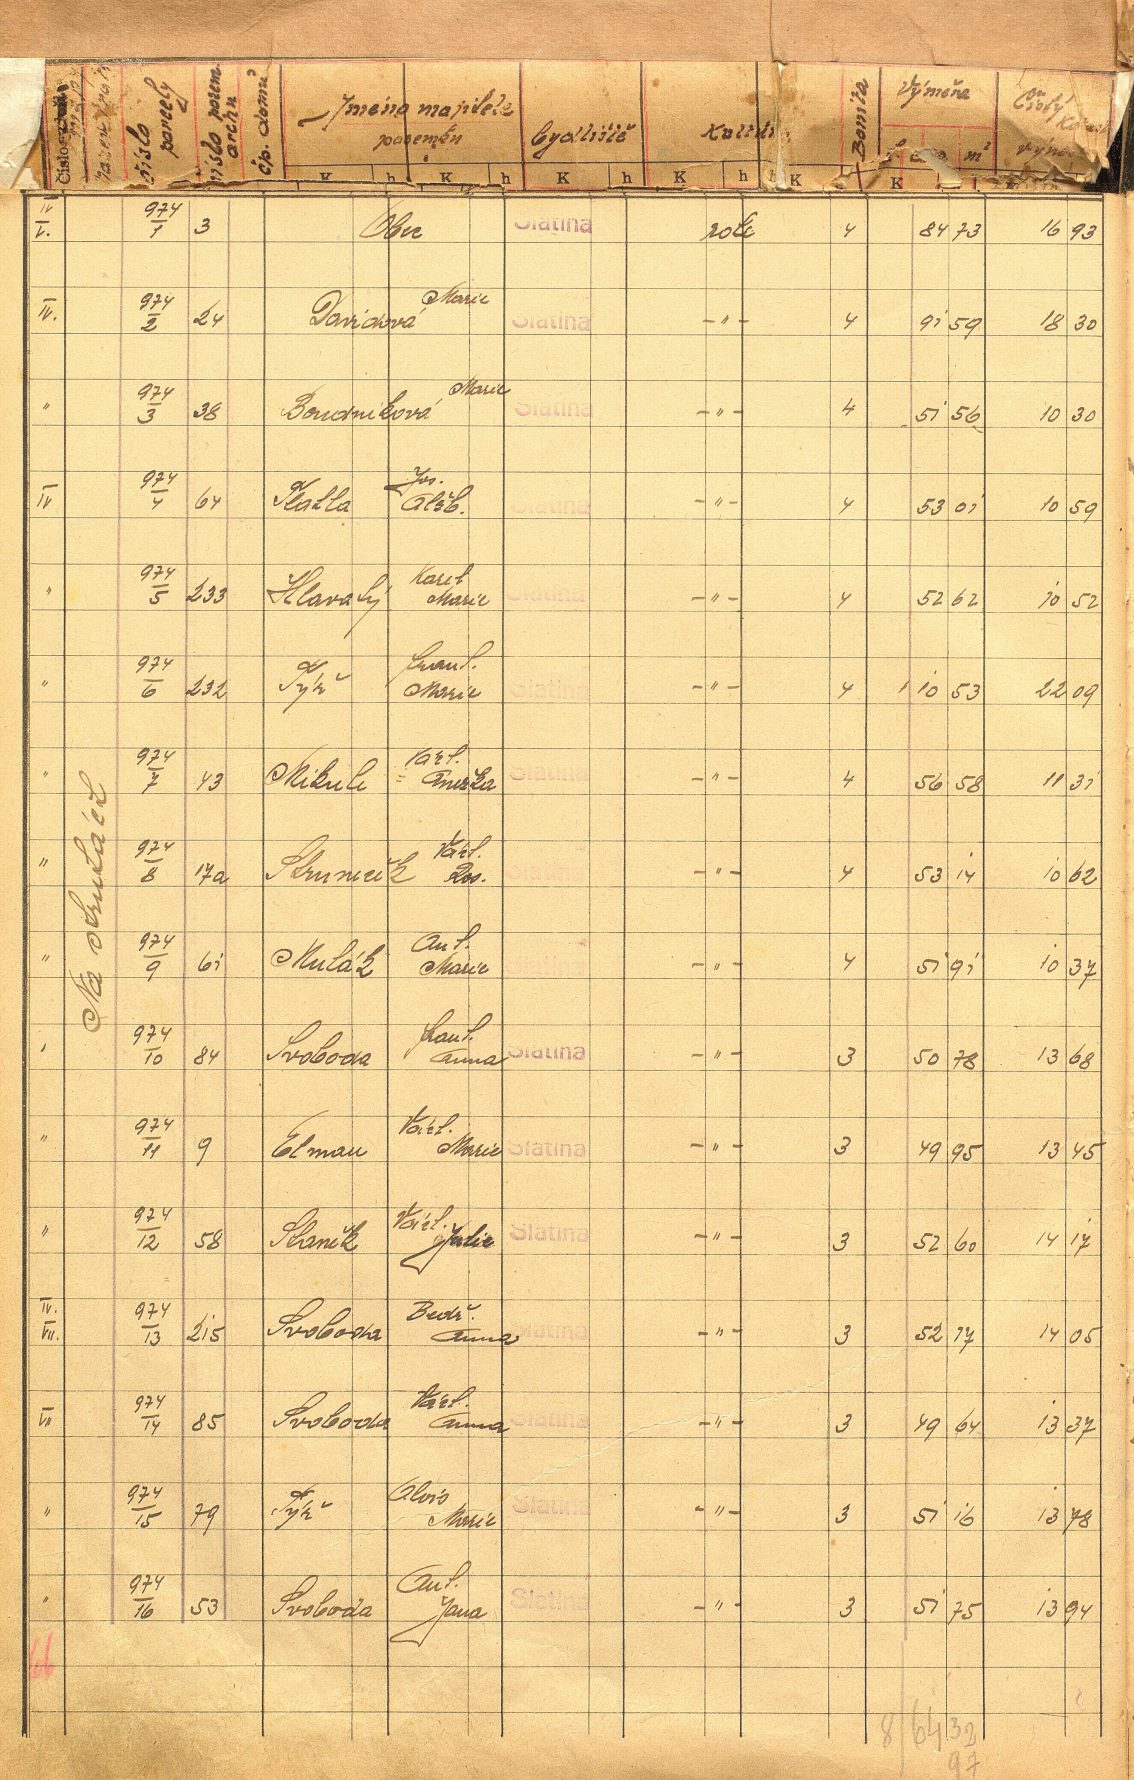 číslo parcely
číslo pozem. archu
čp. domů
Jméno majitele pozemku
Bydliště
Kultura
Bonita
Výměra
m²
Čistý
K h K h K h K h h K K
IV. V. 974/1 3 Obec Slatina role 4 84 73 16 93
IV. 974/2 24 Davidová Marie Slatina -"- 4 91 59 18 30
" 974/3 38 Boudníková Marie Slatina -"- 4 51 56 10 30
IV 974/4 64 Jos. Alžb. Slatina -"- 4 53 01 10 59
" 974/5 233 Hlavatý Karel Marie Slatina -"- 4 52 62 10 52
" 974/6 232 Týř Frant. Marie Slatina -"- 4 1 10 53 22 09
" 974/7 43 Mikule Václ. Anežka Slatina -"- 4 56 58 11 31
" 974/8 17a Struneček Václ. -"- 4 53 14 10 62
" 974/9 61 Mulák Ant. Marie -"- 4 51 91 10 37
" 974/10 84 Svoboda Frant. Anna Slatina -"- 3 50 78 13 68
" 974/11 9 Elman Václ. Marie Slatina -"- 3 49 95 13 45
" 974/12 58 Staněk Václ. Julie Slatina -"- 3 52 60 14 17
IV. VII. 974/13 215 Svoboda Bedř. Anna Slatina -"- 3 52 17 14 05
VII 974/14 85 Svoboda Václ. Anna Slatina -"- 3 49 64 13 37
" 974/15 79 Týř Alois Marie Slatina -"- 3 51 16 13 78
" 974/16 53 Svoboda Ant. Jana Slatina -"- 3 51 75 13 94
66
8 64 32
97